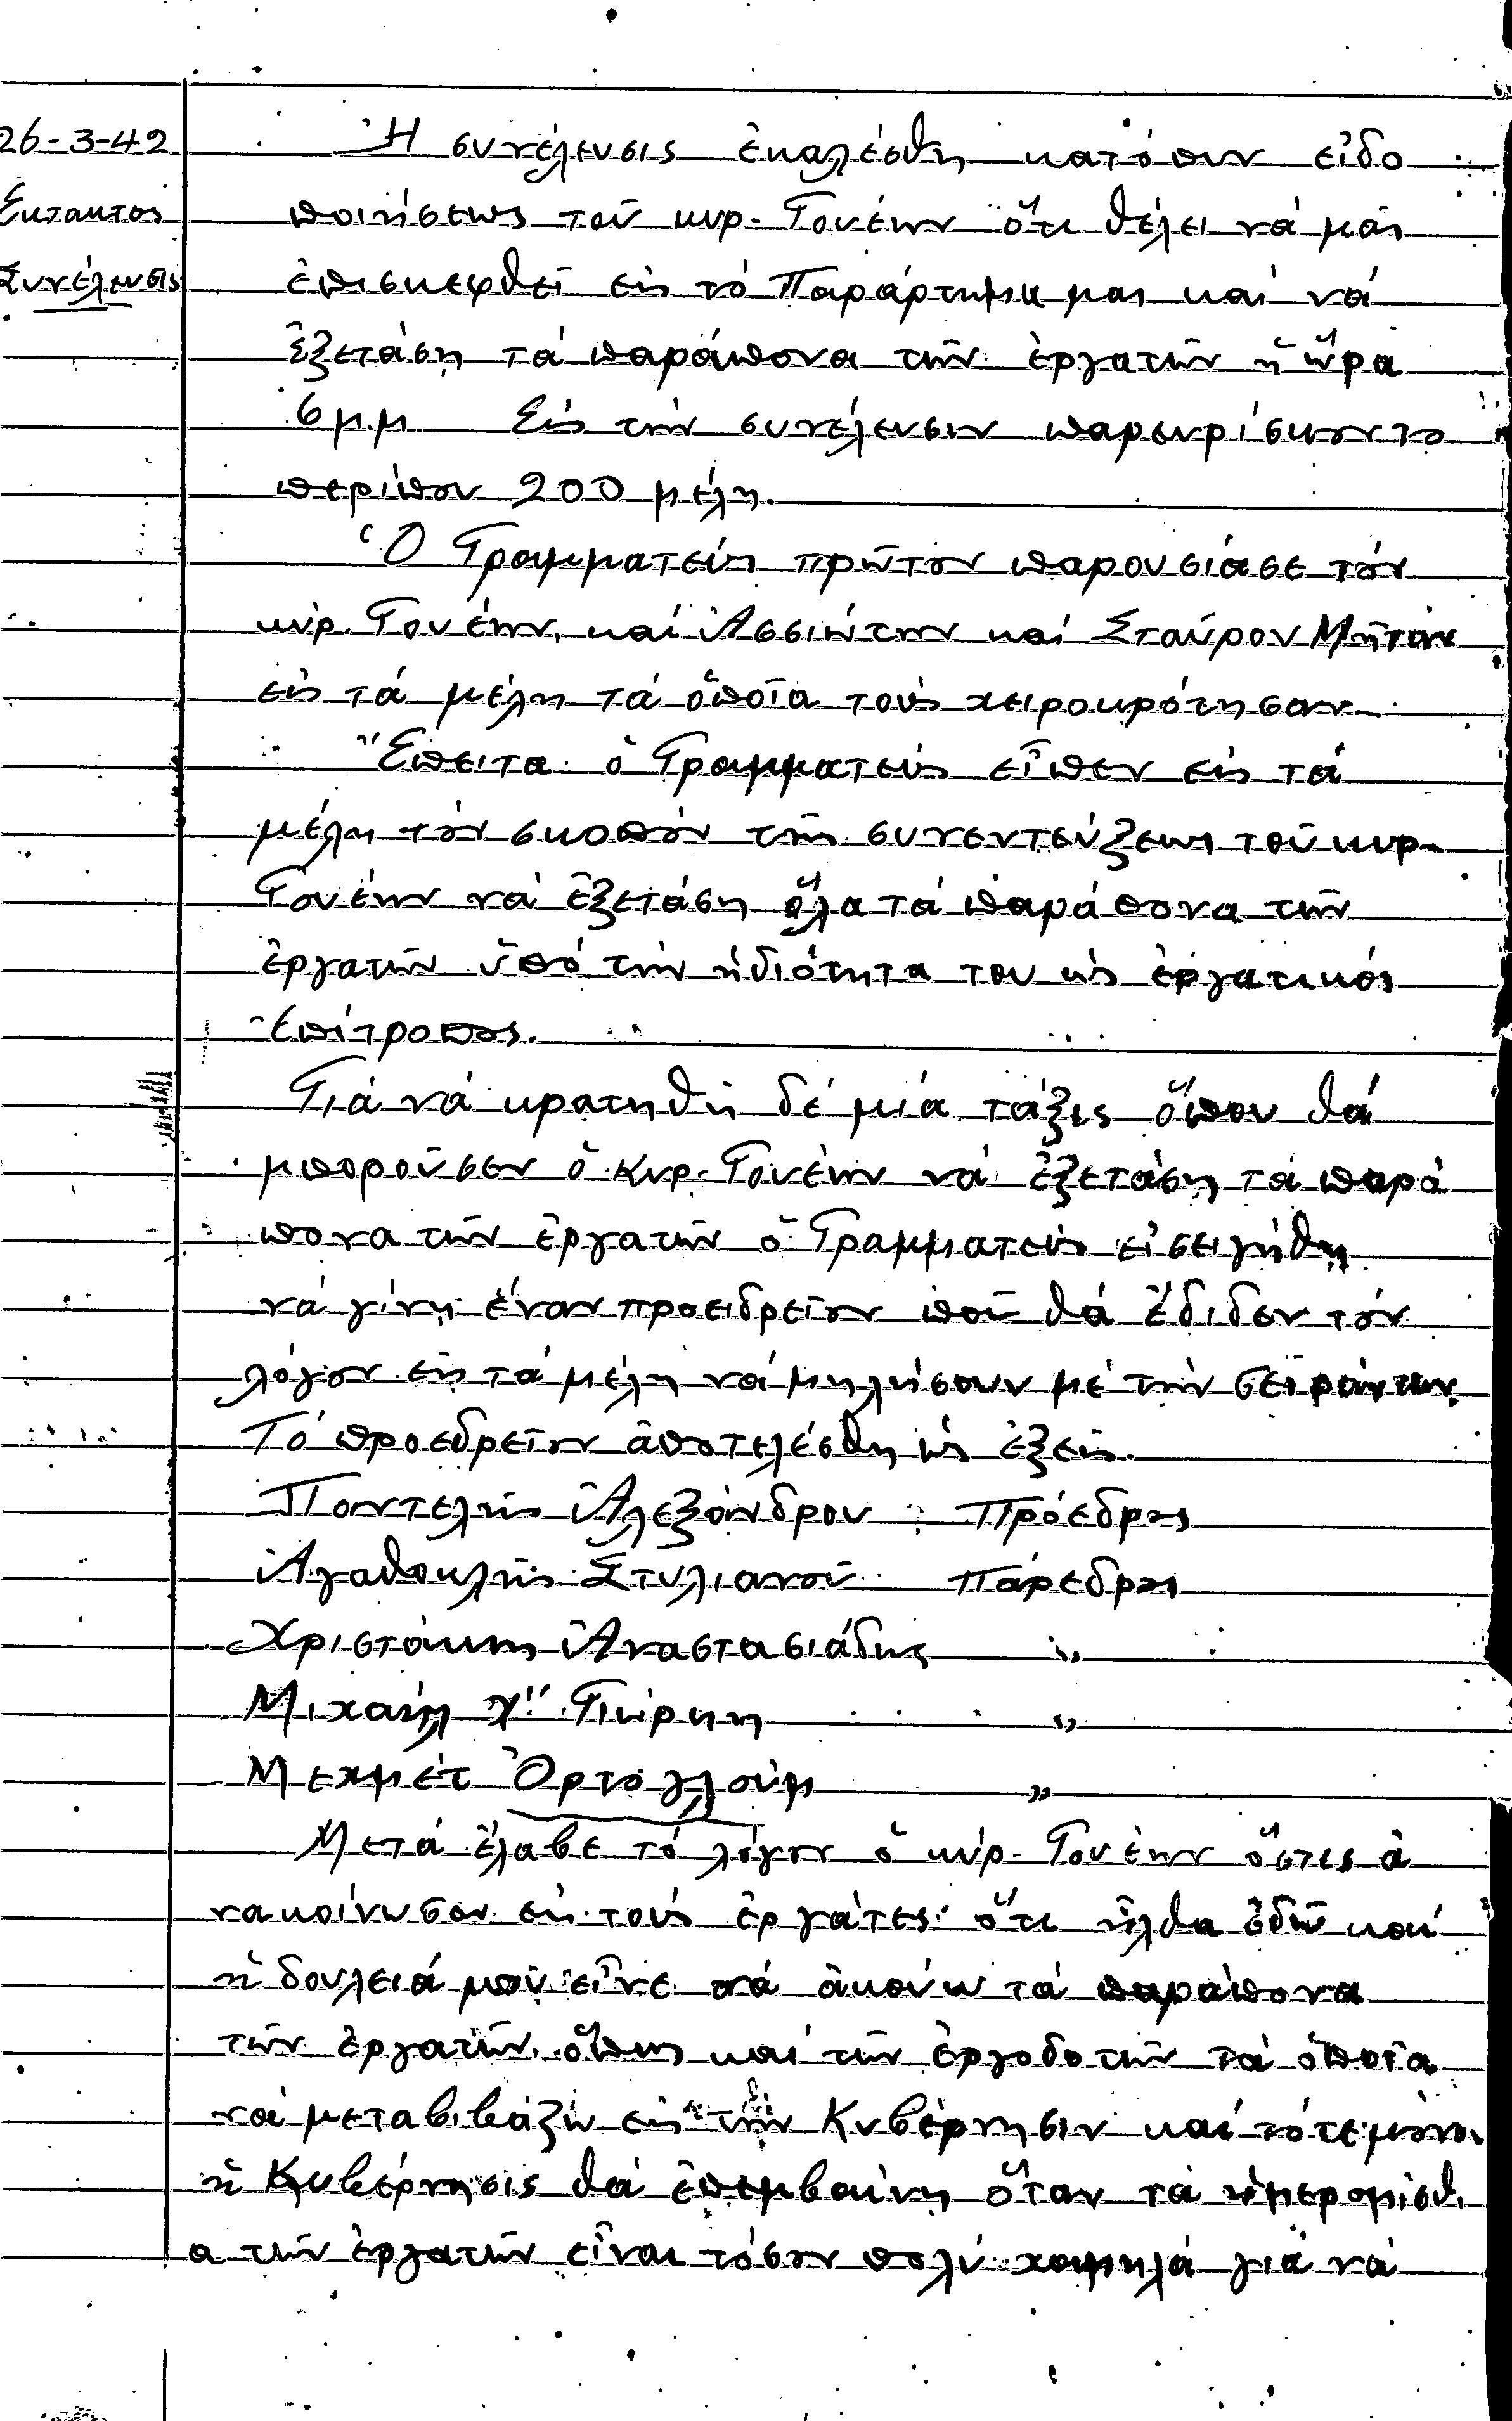 26-3-42
Έκτακτος
Συνέλευσις
Ἡ συνέλευσις ἐκαλέσθη κατόπιν εἰδο
ποιήσεως τοῦ κυρ. Γουέην ὅτι θέλει νά μᾶς
ἐπισκεφθεῖ εἰς τό Παράρτημα μας καί νά
ἐξετάση τά παράπονα τῶν ἐργατῶν ἡ ὥρα
6 μ.μ. Εἰς τήν συνέλευσιν παρευρίσκοντο
περίπου 200 μέλη.
Ὁ Γραμματεύς πρῶτον παρουσίασε τόν
κύρ. Γουέην, καί Ἀσσιώτην καί Σταῦρον
εἰς τά μέλη τά ὁποῖα τούς χειροκρότησαν.
Ἔπειτα ὁ Γραμματεύς εἶπεν εἰς τά
μέλη τόν σκοπόν τῆς συνεντεύξεως τοῦ κυρ.
Γουέην νά ἐξετάση ὅλα τά παράπονα τῶν
ἐργατῶν ὑπό τήν ἠδιότητα του ὡς ἐργατικός
ἐπίτροπος.
Γιά νά κρατηθῆ δέ μιά τάξις ὅπου θά
μποροῦσεν ὁ κυρ. Γουέην νά ἐξετάση τά παρά
πονα τῶν ἐργατῶν ὁ Γραμματεύς εἰσειγήθη
νά γίνη ἕναν προειδρεῖον ποῦ θά ἔδιδεν τόν
λόγον εἰς τά μέλη νά μηλήσουν μέ τήν σειράν των.
Τό προεδρεῖον ἀποτελέσθη ὡς ἑξῆς.
Παντελῆς Ἀλεξάνδρου : Πρόεδρος
Ἀγαθοκλῆς Στυλιανοῦ Πάρεδρος
Χριστάκης Ἀναστασιάδης "
Μιχαήλ Χ" Γιώρκη "
Μεχμέτ Ὀρτογλούμ "
Μετά ἔλαβε τό λόγον ὁ κύρ. Γουέην ὅστις ἀ
νακοίνωσεν εἰς τούς ἐργάτες ὅτι ἦλθα ἐδῶ καί
ἡ δουλειά μου εἶνε νά ἀκούω τά παράπονα
τῶν ἐργατῶν ὅπως καί τῶν ἐργοδοτῶν τά ὁποῖα
νά μεταβιβάζω εἰς τήν Κυβέρνησιν καί τότε μόνον
ἡ Κυβέρνησις θά ἐπεμβαίνη ὅταν τά ἡμερομίσθι
α τῶν ἐργατῶν εἶναι τόσον πολύ χαμηλά γιά νά